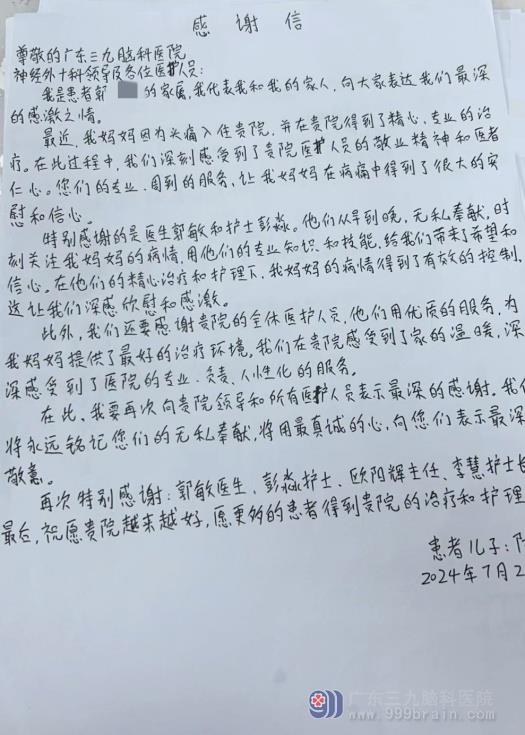 感谢信
尊敬的广东三九脑科医院
神经外十科领导及各位医护人员:
我是患者郭 的家属,我代表我和我的家人,向大家表达我们最深
的感激之情。
最近,我妈妈因为头痛入住贵院,并在贵院得到了精心、专业的治
疗。在此过程中,我们深刻感受到了贵院医护人员的敬业精神和医者
仁心。您们的专业、周到的服务,让我妈妈在病痛中得到了很大的安
慰和信心。
特别感谢的是医生郭敏和护士彭淼。他们从早到晚,无私奉献,时
刻关注我妈妈的病情,用他们的专业知识和技能,给我们带来了希望和
信心。在他们的精心治疗和护理下,我妈妈的病情得到了有效的控制,
这让我们深感欣慰和感激。
此外,我们还要感谢贵院的全体医护人员,他们用优质的服务,为
我妈妈提供了最好的治疗环境。我们在贵院感受到了家的温暖,深
深感受到了医院的专业、负责、人性化的服务。
在此,我要再次向贵院领导和所有医护人员表示最深的感谢。我们
将永远铭记您们的无私奉献,将用最真诚的心,向您们表示最深
敬意。
再次特别感谢:郭敏医生、彭淼护士、欧阳辉主任、李慧护士长
最后,祝愿贵院越来越好,愿更多的患者得到贵院的治疗和护理
患者儿子:
2024年7月2
广东三九脑科医院
www.999brain.com